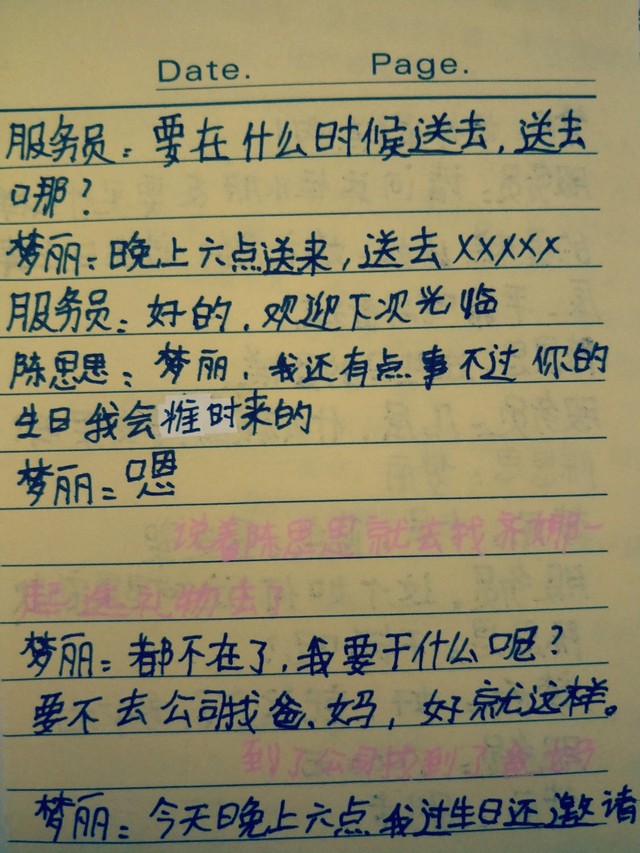 Date. Page.
服务员：要在什么时候送去，送去
哪？
梦丽：晚上六点送来，送去XXXXX
服务员：好的，欢迎下次光临
陈思思：梦丽，我还有点事不过你的
生日我会准时来的
梦丽：嗯
说着陈思思就去找乔娜一
起选礼物去了
梦丽：都不在了，我要干什么呢？
要不去公司找爸、妈，好就这样。
到了公司找到了爸妈
梦丽：今天晚上六点我过生日还邀请